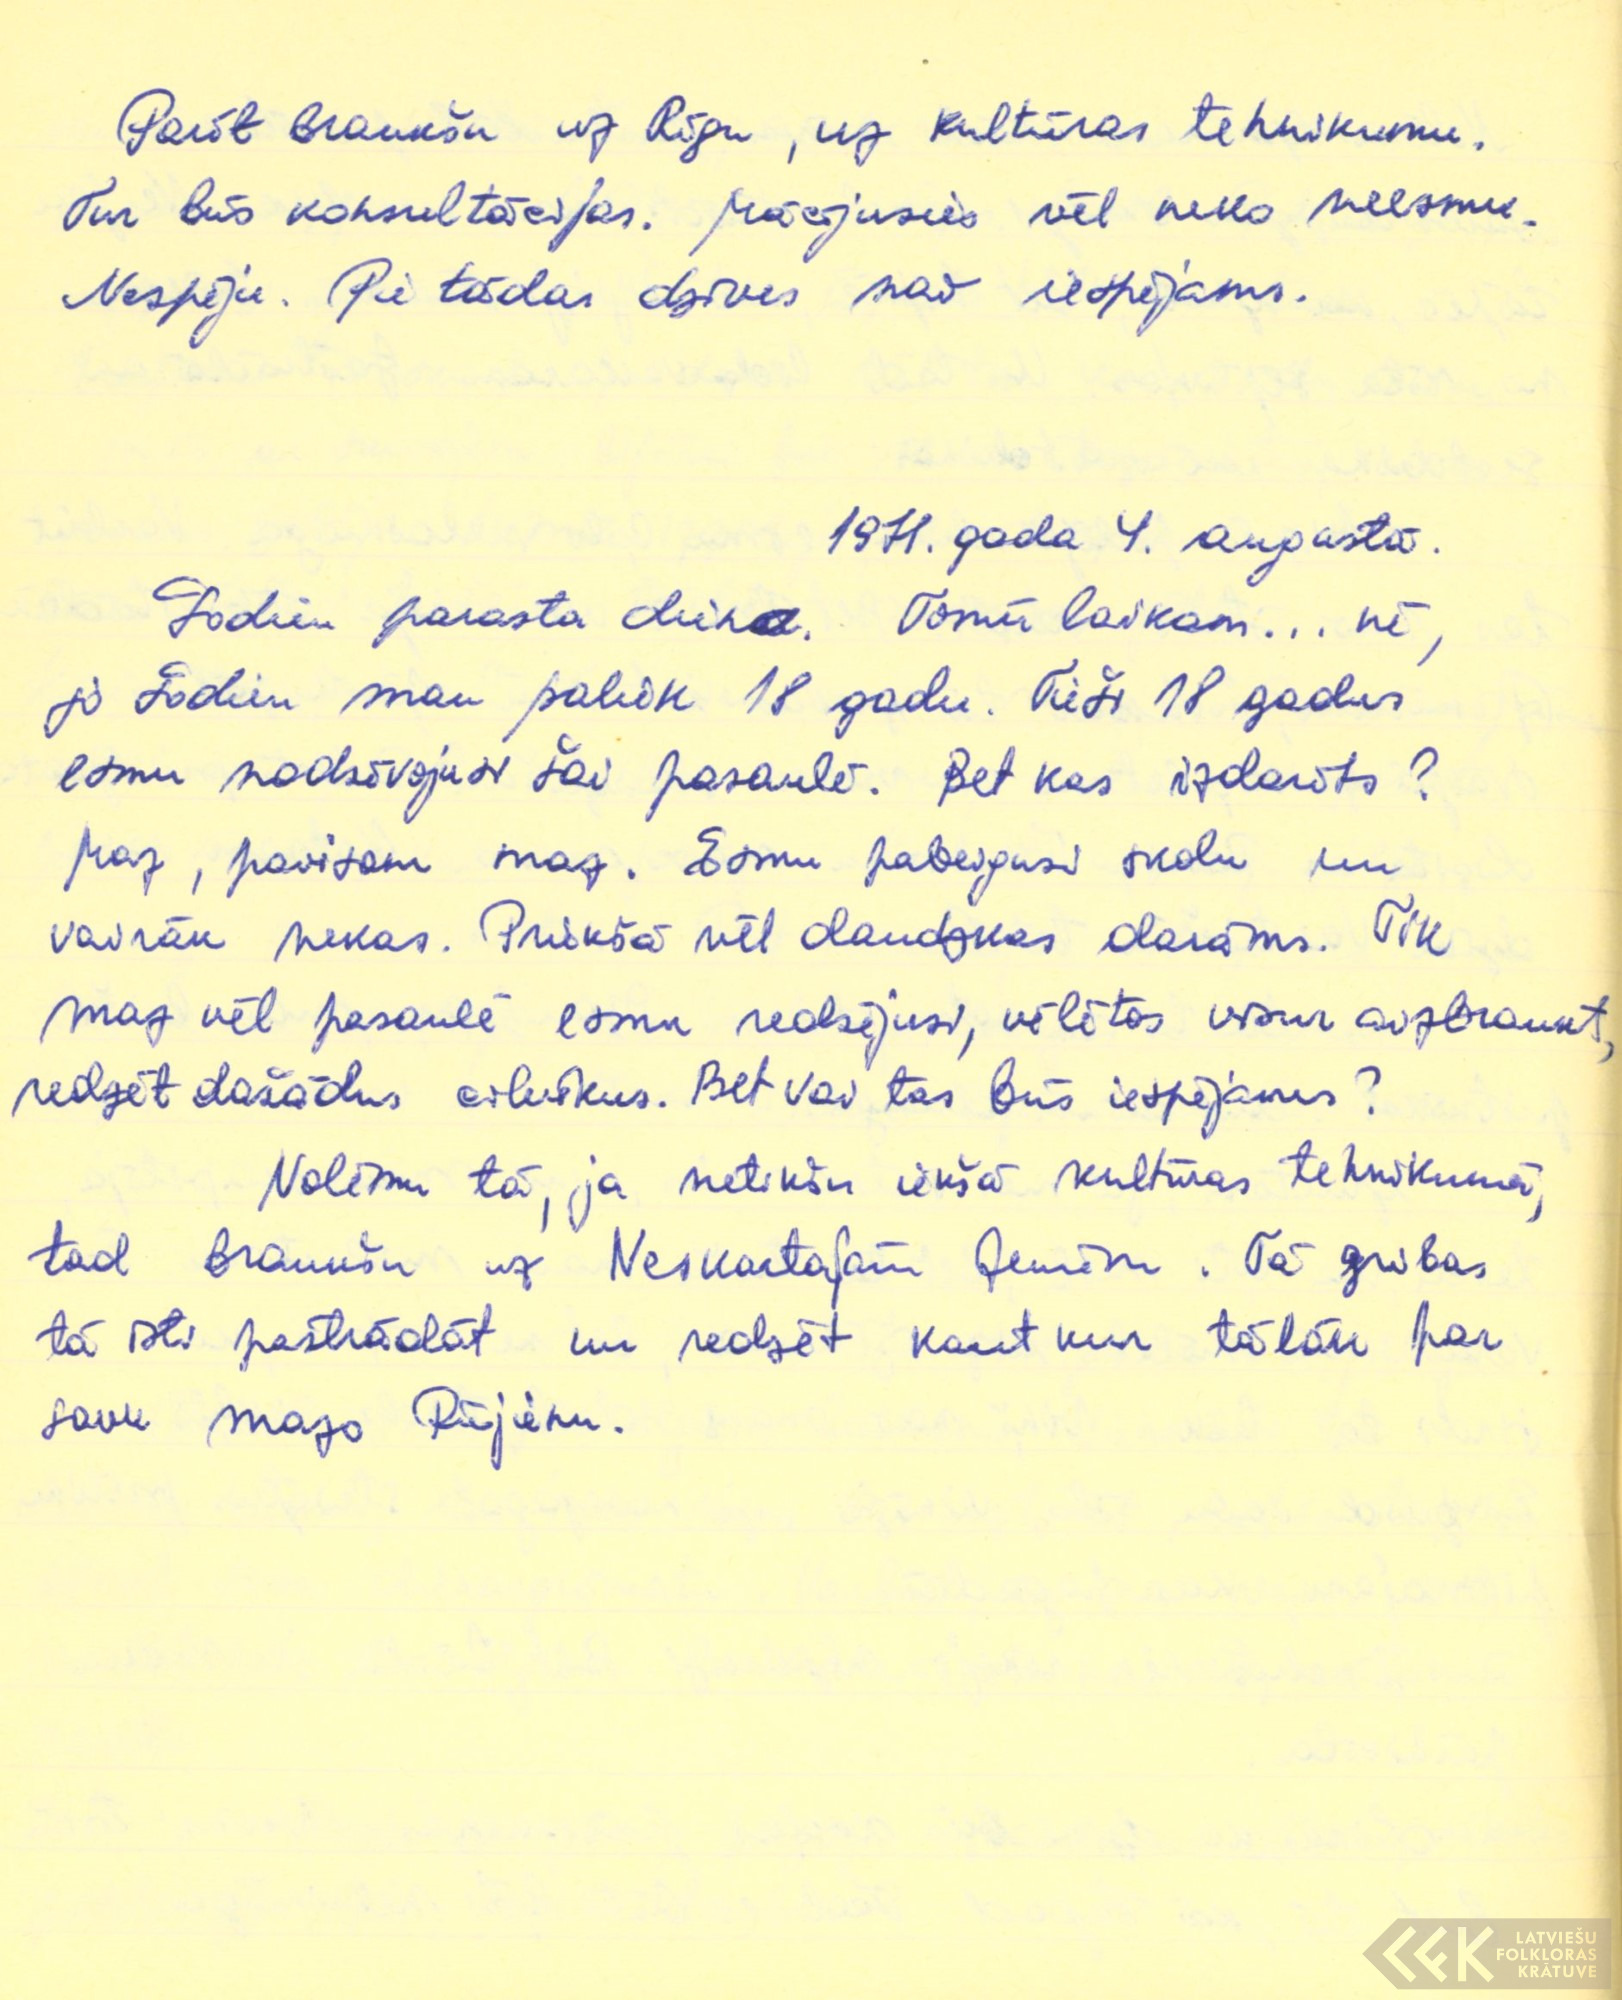 Parīt braukšu uz Rīgu, uz kultūras tehnikumu.
Tur būs konsultācijas. Mācījusies vēl neko neesmu.
Nespēju. Pie tādas dzīves nav iespējams.
1971. gada 4. augustā.
Šodien parasta diena. Tomēr laikam... nē,
jo šodien man paliek 18 gadu. Tieši 18 gadus
esmu nodzīvojusi šai pasaulē. Bet kas izdarīts?
Maz, pavisam maz. Esmu pabeigusi skolu un
vairāk nekas. Priekšā vēl daudzkas darāms. Tik
maz vēl pasaulē esmu redzējusi, vēlētos visur aizbraukt,
redzēt dažādus cilvēkus. Bet vai tas būs iespējams?
Nolēmu tā, ja netikšu iekšā kultūras tehnikumā,
tad braukšu uz Neskartajām zemēm. Tā gribas
tā īsti pastrādāt un redzēt kaut kur tālāk par
savu mazo Rūjienu.
LATVIEŠU
FOLKLORAS
KRĀTUVE